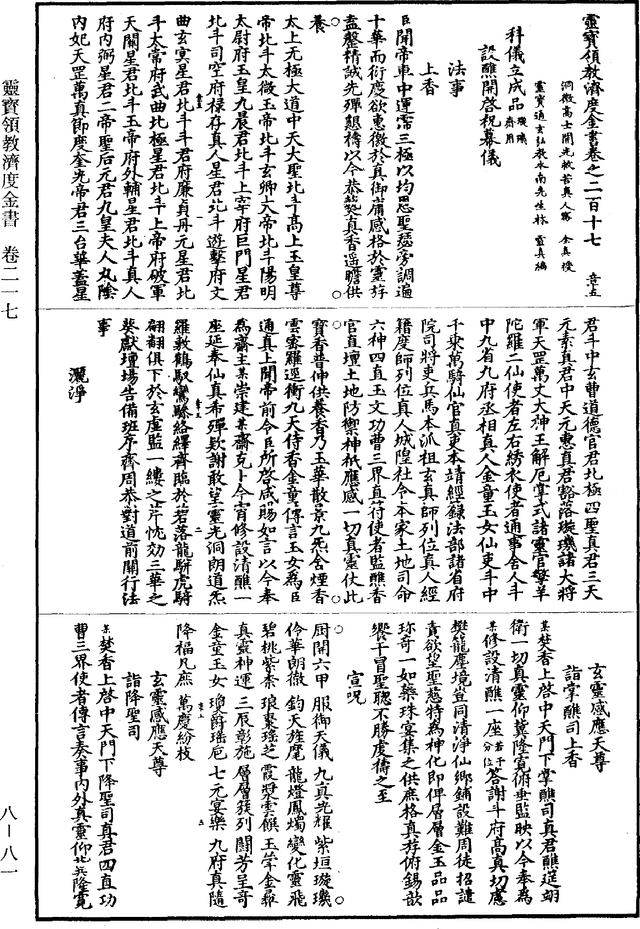 靈寶領教濟度金書卷之二百十七 音五
洞微高士開光救苦真人甯 全真 授
靈寶通玄弘教水南先生林 靈真 編
科儀立成品 璇璣齋用
設醮開啓祝幕儀
法事
上香
臣聞帝車中運霈三極以均恩聖蹕旁調遍
十華而衍慶欲惠徼於真御庸感格於靈斿
盍罄精誠先殫懇禱以今恭爇真香遥瞻供
養
太上无極大道中天大聖北斗高上玉皇尊
帝北斗太微玉帝北斗玄卿大帝北斗陽明
太尉府玉皇九晨君北斗上宰府巨門星君
北斗司空府禄存真人星君北斗遊擊府文
曲玄冥星君北斗斗君府廉貞丹元星君北
斗太常府武曲北極星君北斗上帝府破軍
天關星君北斗玉帝府外輔星君北斗真人
府内弼星君二帝聖后元君九皇夫人九陰
内妃天罡萬真節度奎光帝君三台華蓋星
君斗中玄曹道德官君北極四聖真君三天
元素真君中天元惠真君豁落璇璣諸大將
軍天罡萬丈大神王解厄掌式諸靈官擎羊
陀羅二仙使者左右綉衣使者通事舍人斗
中九省九府丞相真人金童玉女仙吏斗中
千乘萬騎仙官真吏本靖經籙法部諸省府
院司將吏兵馬本派祖玄真師列位真人經
籍度師列位真人城隍社令本家土地司命
六神四直玉文功曹三界直符使者監醮香
官直壇土地防禦神祇應感一切真靈仗此
寶香普伸供養香乃玉華散景九炁含煙香
雲密羅逕衝九天侍香金童傳言玉女爲臣
通真上聞帝前令臣所啓咸賜如言以今奉
爲齋主某崇建某齋克卜今宵修設清醮一
座延奉仙真希殫欵謝敢望靈光洞朗道炁
羅敷鶴馭鸞驂絡繹齊臨於碧落龍駢虎騎
翩翩俱下於玄虛監一縷之芹忱効三華之
葵獻壇場告備班序齊周恭對道前開行法
事
灑淨
玄靈感應天尊
詣掌醮司上香
某焚香上啓中天門下掌醮司真君醮筵翊
衛一切真靈仰冀隆寬俯垂監映以今奉爲
某修設清醮一座若干分位荅謝斗府高真切慮
樊籠塵境豈同清淨仙鄉鋪設難周徒招譴
責欲望聖慈特爲神化即俾層層金玉品品
珍奇一如蘂珠宴集之供庶格真斿俯錫歆
饗干冒聖聦不勝虔禱之至
宣呪
厨開六甲 服御天儀 九真光耀 紫垣璇璣
伶華朗徹 鈞天旌麾 龍燈鳳燭 變化靈飛
碧桃紫柰 琅棗瑶芝 霞漿雲饌 玉斝金彞
真靈神運 三辰彰施 層層發列 鬭芳呈奇
金童玉女 瓊爵瑶巵 七元宴樂 九府真隨
降福凡庶 萬慶紛枝
玄靈感應天尊
詣降聖司
某焚香上啓中天門下降聖司真君四直功
曹三界使者傳言奏事内外真靈仰兾隆寬
靈寶領教濟度金書 卷二一七
八—八一